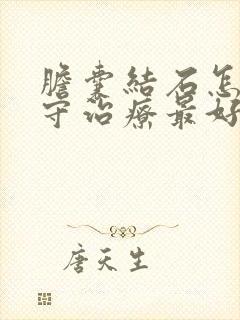 膽囊結石怎
守治療最好
唐天生